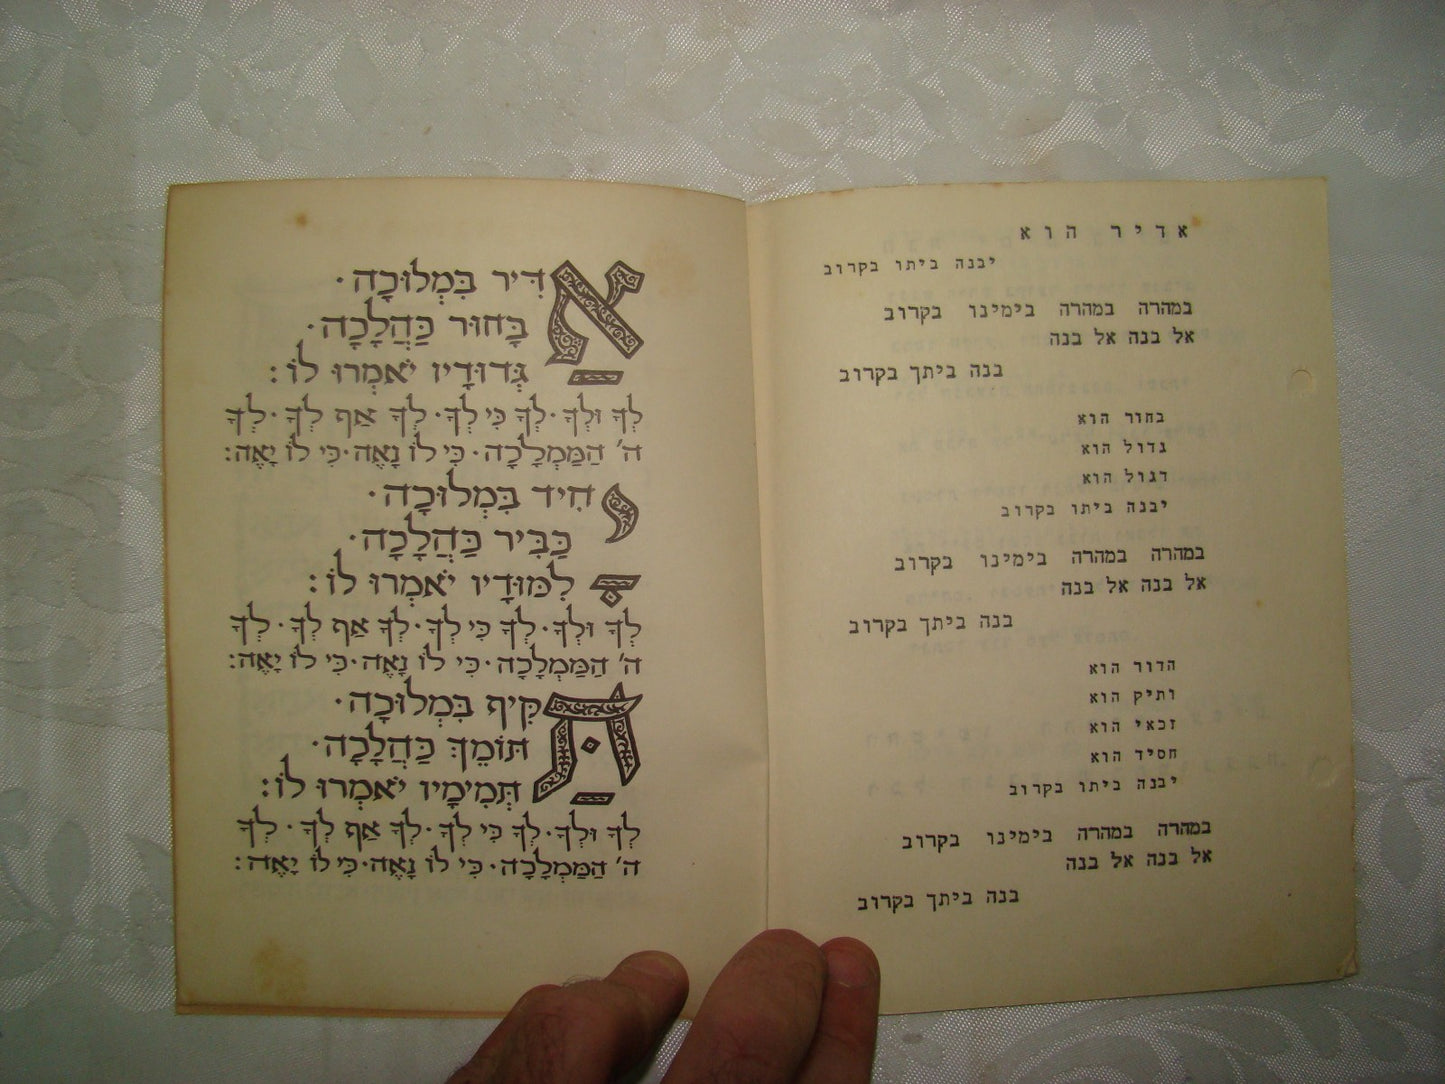 אדיר הוא
יבנה ביתו בקרוב
במהרה במהרה בימינו בקרוב
אל בנה אל בנה
בנה ביתך בקרוב
בחור הוא
גדול הוא
דגול הוא
יבנה ביתו בקרוב
במהרה במהרה בימינו בקרוב
אל בנה אל בנה
בנה ביתך בקרוב
הדור הוא
ותיק הוא
זכאי הוא
חסיד הוא
יבנה ביתו בקרוב
במהרה במהרה בימינו בקרוב
אל בנה אל בנה
בנה ביתך בקרוב
אַדִּיר בִּמְלוּכָה·
בָּחוּר כַּהֲלָכָה·
גְּדוּדָיו יֹאמְרוּ לוֹ:
לְךָ וּלְךָ· לְךָ כִּי לְךָ· לְךָ אַף לְךָ· לְךָ
ה' הַמַּמְלָכָה· כִּי לוֹ נָאֶה· כִּי לוֹ יָאֶה:
יָחִיד בִּמְלוּכָה·
כַּבִּיר כַּהֲלָכָה·
לִמּוּדָיו יֹאמְרוּ לוֹ:
לְךָ וּלְךָ· לְךָ כִּי לְךָ· לְךָ אַף לְךָ· לְךָ
ה' הַמַּמְלָכָה· כִּי לוֹ נָאֶה· כִּי לוֹ יָאֶה:
תַּקִּיף בִּמְלוּכָה·
תּוֹמֵךְ כַּהֲלָכָה·
תְּמִימָיו יֹאמְרוּ לוֹ:
לְךָ וּלְךָ· לְךָ כִּי לְךָ· לְךָ אַף לְךָ· לְךָ
ה' הַמַּמְלָכָה· כִּי לוֹ נָאֶה· כִּי לוֹ יָאֶה: